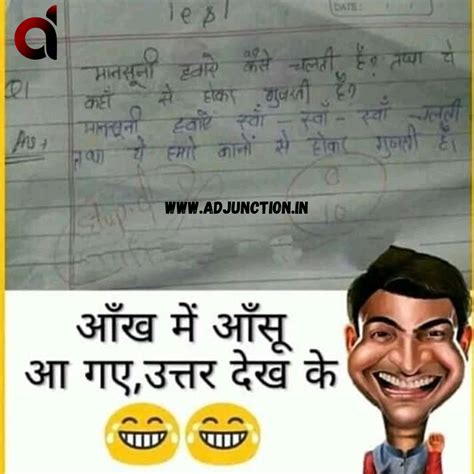 Test
DATE:
Q1 मानसूनी हवाऐं कैसे चलती हैं? तथा ये
कहाँ से होकर गुजरती हैं?
Ans → मानसूनी हवाऐं स्वाँ - स्वाँ - स्वाँ चलती
तथा ये हमारे कानों से होकर गुजरती हैं।
0
10
Stupid
WWW.ADJUNCTION.IN
आँख में आँसू
आ गए,उत्तर देख के